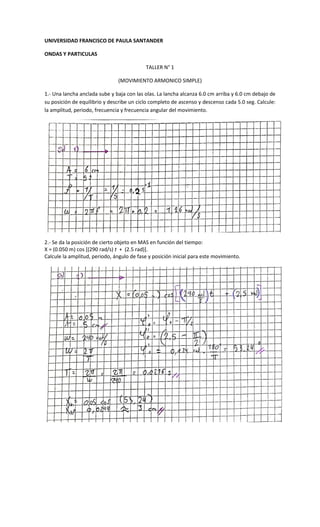 UNIVERSIDAD FRANCISCO DE PAULA SANTANDER
ONDAS Y PARTICULAS
TALLER N° 1
(MOVIMIENTO ARMONICO SIMPLE)
1.- Una lancha anclada sube y baja con las olas. La lancha alcanza 6.0 cm arriba y 6.0 cm debajo de
su posición de equilibrio y describe un ciclo completo de ascenso y descenso cada 5.0 seg. Calcule:
la amplitud, periodo, frecuencia y frecuencia angular del movimiento.
1)
A = 6 cm
T = 5 s
f = 1/T = 1/5 = 0,2 s⁻¹
w = 2πf = 2π · 0,2 = 1,26 rad/s
2.- Se da la posición de cierto objeto en MAS en función del tiempo:
X = (0.050 m) cos [(290 rad/s) t + (2.5 rad)].
Calcule la amplitud, periodo, ángulo de fase y posición inicial para este movimiento.
2)
X = (0,05 m) cos [(290 rad/s) t + (2,5 rad)]
A = 0,05 m
A = 5 cm
w = 290 rad/s
w = 2π/T
T = 2π/w = 2π/290 = 0,0216 s
(2,5 - π/2)
180°/π = 53,24°
0,05 cos (53,24)
3 cm